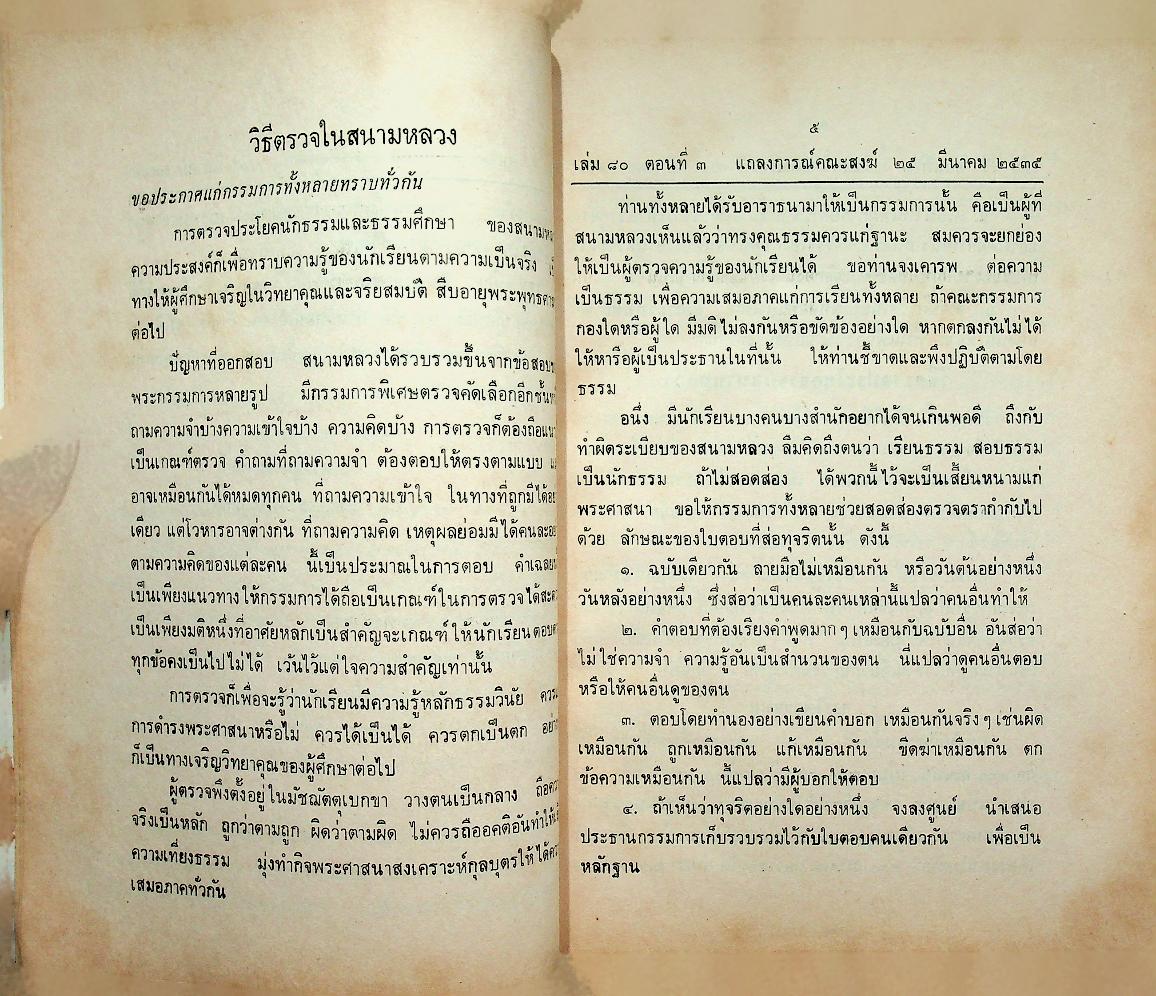 วิธีตรวจในสนามหลวง
ขอประกาศแก่กรรมการทั้งหลายทราบทั่วกัน
การตรวจประโยคนักธรรมและธรรมศึกษา ของสนามหล
ความประสงค์ก็เพื่อทราบความรู้ของนักเรียนตามความเป็นจริง
ทางให้ผู้ศึกษาเจริญในวิทยาคุณและจริยสมบัติ สืบอายุพระพุทธศา
ต่อไป
ปัญหาที่ออกสอบ สนามหลวงได้รวบรวมขึ้นจากข้อสอบ
พระกรรมการหลายรูป มีกรรมการพิเศษตรวจคัดเลือกอีกชั้น
ถามความจำบ้างความเข้าใจบ้าง ความคิดบ้าง การตรวจก็ต้องถือแน
เป็นเกณฑ์ตรวจ คำถามที่ถามความจำ ต้องตอบให้ตรงตามแบบ
อาจเหมือนกันได้หมดทุกคน ที่ถามความเข้าใจ ในทางที่ถูกมีได้
เดียว แต่โวหารอาจต่างกัน ที่ถามความคิด เหตุผลย่อมมีได้คนละ
ตามความคิดของแต่ละคน นี้เป็นประมาณในการตอบ คำเฉลย
เป็นเพียงแนวทางให้กรรมการได้ถือเป็นเกณฑ์ในการตรวจได้สะ
เป็นเพียงมติหนึ่งที่อาศัยหลักเป็นสำคัญจะเกณฑ์ให้นักเรียนตอบ
ทุกข้อคงเป็นไปไม่ได้ เว้นไว้แต่ใจความสำคัญเท่านั้น
การตรวจก็เพื่อจะรู้ว่านักเรียนมีความรู้หลักธรรมวินัย ควร
การดำรงพระศาสนาหรือไม่ ควรได้เป็นได้ ควรตกเป็นตก อย่า
ก็เป็นทางเจริญวิทยาคุณของผู้ศึกษาต่อไป
ผู้ตรวจพึงตั้งอยู่ในมัชฌัตตุเบกขา วางตนเป็นกลาง ถือคว
จริงเป็นหลัก ถูกว่าตามถูก ผิดว่าตามผิด ไม่ควรถืออคติอันทำให้
ความเที่ยงธรรม มุ่งทำกิจพระศาสนาสงเคราะห์กุลบุตรให้ได้คว
เสมอภาคทั่วกัน
๕
เล่ม ๘๐ ตอนที่ ๓ แถลงการณ์คณะสงฆ์ ๒๕ มีนาคม ๒๕๓๕
ท่านทั้งหลายได้รับอาราธนามาให้เป็นกรรมการนั้น คือเป็นผู้ที่
สนามหลวงเห็นแล้วว่าทรงคุณธรรมควรแก่ฐานะ สมควรจะยกย่อง
ให้เป็นผู้ตรวจความรู้ของนักเรียนได้ ขอท่านจงเคารพ ต่อความ
เป็นธรรม เพื่อความเสมอภาคแก่การเรียนทั้งหลาย ถ้าคณะกรรมการ
กองใดหรือผู้ใด มีมติไม่ลงกันหรือขัดข้องอย่างใด หากตกลงกันไม่ได้
ให้หารือผู้เป็นประธานในที่นั้น ให้ท่านชี้ขาดและพึงปฏิบัติตามโดย
ธรรม
อนึ่ง มีนักเรียนบางคนบางสำนักอยากได้จนเกินพอดี ถึงกับ
ทำผิดระเบียบของสนามหลวง ลืมคิดถึงตนว่า เรียนธรรม สอบธรรม
เป็นนักธรรม ถ้าไม่สอดส่อง ได้พวกนี้ไว้จะเป็นเสี้ยนหนามแก่
พระศาสนา ขอให้กรรมการทั้งหลายช่วยสอดส่องตรวจตรากำกับไป
ด้วย ลักษณะของใบตอบที่ส่อทุจริตนั้น ดังนี้
๑. ฉบับเดียวกัน ลายมือไม่เหมือนกัน หรือวันต้นอย่างหนึ่ง
วันหลังอย่างหนึ่ง ซึ่งส่อว่าเป็นคนละคนเหล่านี้แปลว่าคนอื่นทำให้
๒. คำตอบที่ต้องเรียงคำพูดมาก ๆ เหมือนกับฉบับอื่น อันส่อว่า
ไม่ใช่ความจำ ความรู้อันเป็นสำนวนของตน นี่แปลว่าดูคนอื่นตอบ
หรือให้คนอื่นดูของตน
๓. ตอบโดยทำนองอย่างเขียนคำบอก เหมือนกันจริง ๆ เช่นผิด
เหมือนกัน ถูกเหมือนกัน แก้เหมือนกัน ขีดฆ่าเหมือนกัน ตก
ข้อความเหมือนกัน นี้แปลว่ามีผู้บอกให้ตอบ
๔. ถ้าเห็นว่าทุจริตอย่างใดอย่างหนึ่ง จงลงศูนย์ นำเสนอ
ประธานกรรมการเก็บรวบรวมไว้กับใบตอบคนเดียวกัน เพื่อเป็น
หลักฐาน